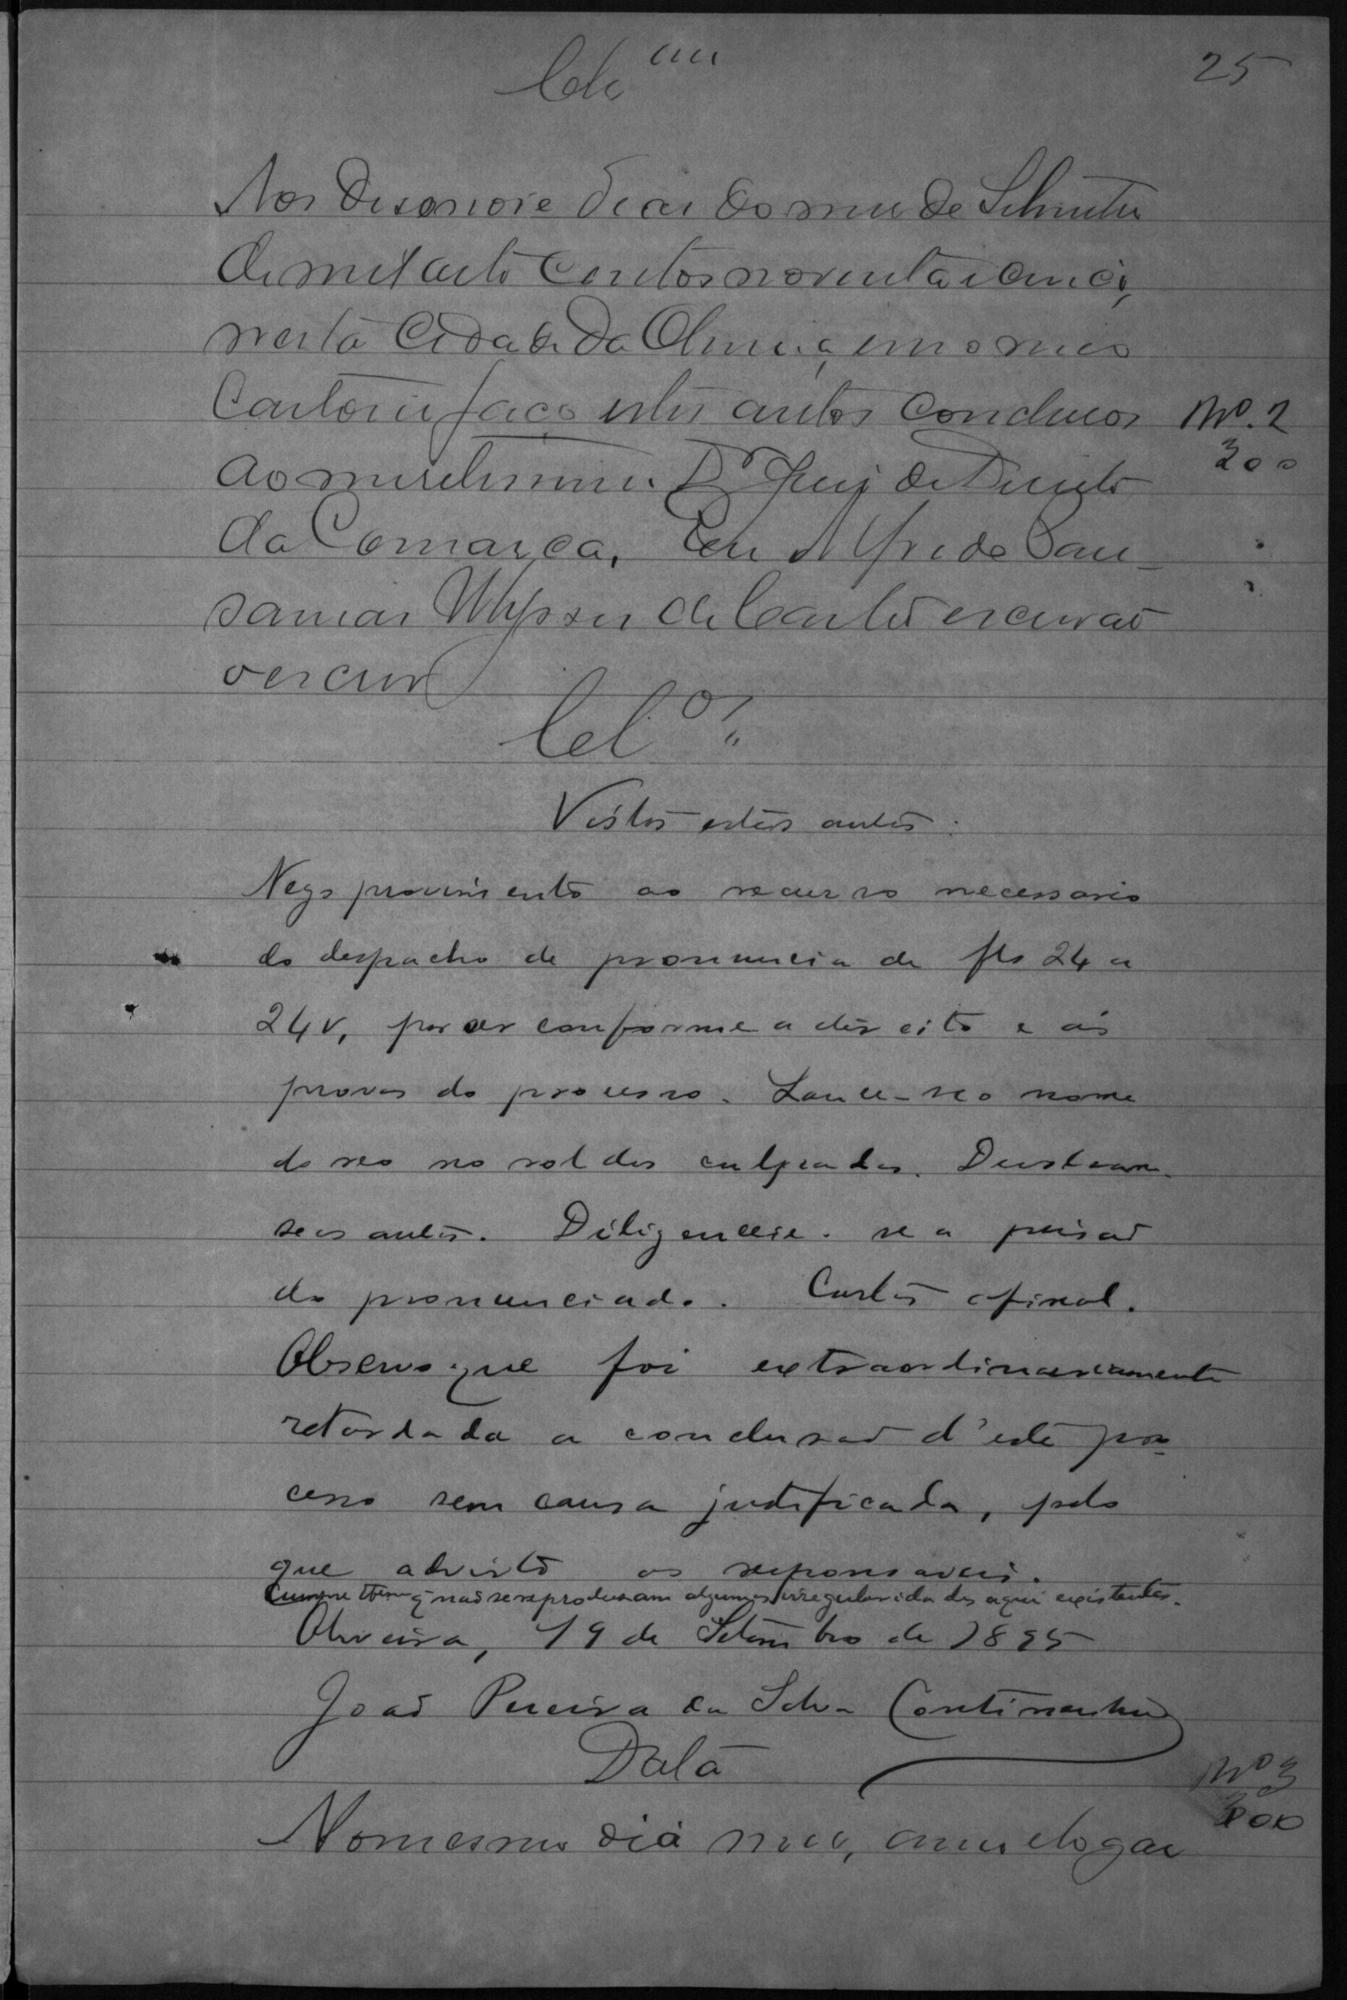 25
Aos desenove dias do mez de Setembro
de mil oito centos noventa e cinco,
nesta Cidade da Oliveira, em o meo
Cartorio faço estes autos conclusos
Nº. 2
300
ao meretissimo Dr Juiz de Direito
da Comarca, Eu Alfredo
de Castro escrivão
o escrevi
Cls.
Vistos estes autos:
Nego provimento ao recurso necessario
do despacho de pronuncia de fls 24 a
24v, por ser conforme a direito e ás
provas do processo. Lance-se o nome
do reo no rol dos culpados.
se os autos. Diligencie-se a prisaõ
do pronunciado. Custas afinal.
Observo que foi extraordinariamente
retardada a conclusaõ d'este pro-
cesso sem causa justificada, pelo
que advirto os responsaveis.
Cumpre tbem q naõ se reproduzam algumas irregularidades aqui existentes.
Oliveira, 19 de Setembro de 1895
Joaõ Pereira da Silva Continentino
Data
Nº 3
300
No mesmo dia mez, anno e logar